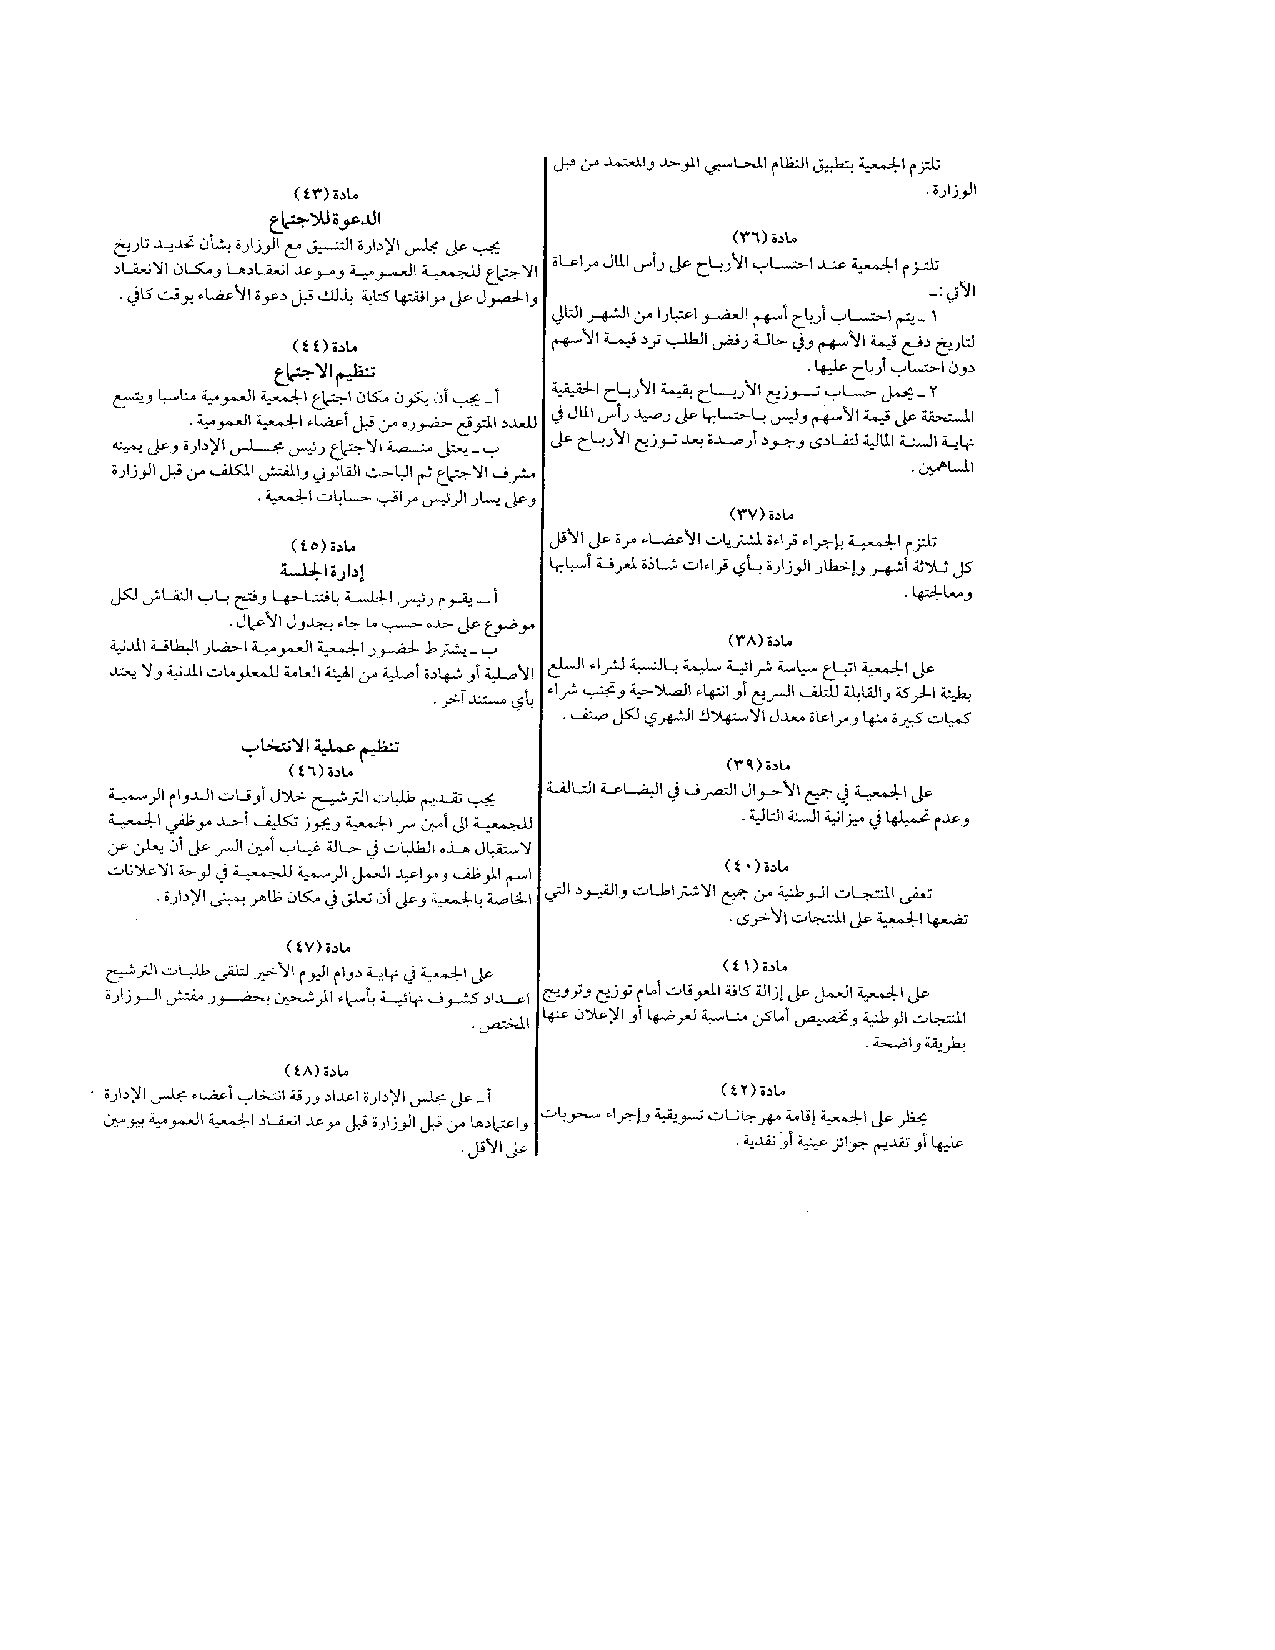 تلتزم الجمعية بتطبيق النظام المحاسبي الموحد والمعتمد من قبل
الوزارة .
مادة (٣٦)
تلتزم الجمعية عند احتساب الأرباح على رأس المال مراعاة
الآتي :ـ
١ ـ يتم احتساب أرباح أسهم العضو اعتبارا من الشهر التالي
لتاريخ دفع قيمة الأسهم وفي حالة رفض الطلب ترد قيمة الأسهم
دون احتساب أرباح عليها .
٢ ـ يحمل حساب توزيع الأرباح بقيمة الأرباح الحقيقية
المستحقة على قيمة الأسهم وليس باحتسابها على رصيد رأس المال في
نهاية السنة المالية لتفادى وجود أرصدة بعد توزيع الأرباح على
المساهمين .
مادة (٣٧)
تلتزم الجمعية بإجراء قراءة لمشتريات الأعضاء مرة على الأقل
كل ثلاثة أشهر وإخطار الوزارة بأي قراءات شاذة لمعرفة أسبابها
ومعالجتها .
مادة (٣٨)
على الجمعية اتباع سياسة شرائية سليمة بالنسبة لشراء السلع
بطيئة الحركة والقابلة للتلف السريع أو انتهاء الصلاحية وتجنب شراء
كميات كبيرة منها ومراعاة معدل الاستهلاك الشهري لكل صنف .
مادة (٣٩)
على الجمعية في جميع الأحوال التصرف في البضاعة التالفة
وعدم تحميلها في ميزانية السنة التالية .
مادة (٤٠)
تعفى المنتجات الوطنية من جميع الاشتراطات والقيود التي
تضعها الجمعية على المنتجات الأخرى .
مادة (٤١)
على الجمعية العمل على إزالة كافة المعوقات أمام توزيع وترويج
المنتجات الوطنية وتخصيص أماكن مناسبة لعرضها أو الإعلان عنها
بطريقة واضحة .
مادة (٤٢)
يحظر على الجمعية إقامة مهرجانات تسويقية وإجراء سحوبات
عليها أو تقديم جوائز عينية أو نقدية .
مادة (٤٣)
الدعوة للاجتماع
يجب على مجلس الإدارة التنسيق مع الوزارة بشأن تحديد تاريخ
الاجتماع للجمعية العمومية وموعد انعقادها ومكان الانعقاد
والحصول على موافقتها كتابة بذلك قبل دعوة الأعضاء بوقت كافي .
مادة (٤٤)
تنظيم الاجتماع
أ ـ يجب أن يكون مكان اجتماع الجمعية العمومية مناسبا ويتسع
للعدد المتوقع حضوره من قبل أعضاء الجمعية العمومية .
ب ـ يعتلى منصة الاجتماع رئيس مجلس الإدارة وعلى يمينه
مشرف الاجتماع ثم الباحث القانوني والمفتش المكلف من قبل الوزارة
وعلى يسار الرئيس مراقب حسابات الجمعية .
مادة (٤٥)
إدارة الجلسة
أ ـ يقوم رئيس الجلسة بافتتاحها وفتح باب النقاش لكل
موضوع على حده حسب ما جاء بجدول الأعمال .
ب ـ يشترط لحضور الجمعية العمومية احضار البطاقة المدنية
الأصلية أو شهادة أصلية من الهيئة العامة للمعلومات المدنية ولا يعتد
بأي مستند آخر .
تنظيم عملية الانتخاب
مادة (٤٦)
يجب تقديم طلبات الترشيح خلال أوقات الدوام الرسمية
للجمعية الى أمين سر الجمعية ويجوز تكليف أحد موظفي الجمعية
لاستقبال هذه الطلبات في حالة غياب أمين السر على أن يعلن عن
اسم الموظف ومواعيد العمل الرسمية للجمعية في لوحة الاعلانات
الخاصة بالجمعية وعلى أن تعلق في مكان ظاهر بمبنى الإدارة .
مادة (٤٧)
على الجمعية في نهاية دوام اليوم الأخير لتلقى طلبات الترشيح
اعداد كشوف نهائية بأسماء المرشحين بحضور مفتش الوزارة
المختص .
مادة (٤٨)
أ ـ على مجلس الإدارة اعداد ورقة انتخاب أعضاء مجلس الإدارة
واعتمادها من قبل الوزارة قبل موعد انعقاد الجمعية العمومية بيومين
على الأقل .